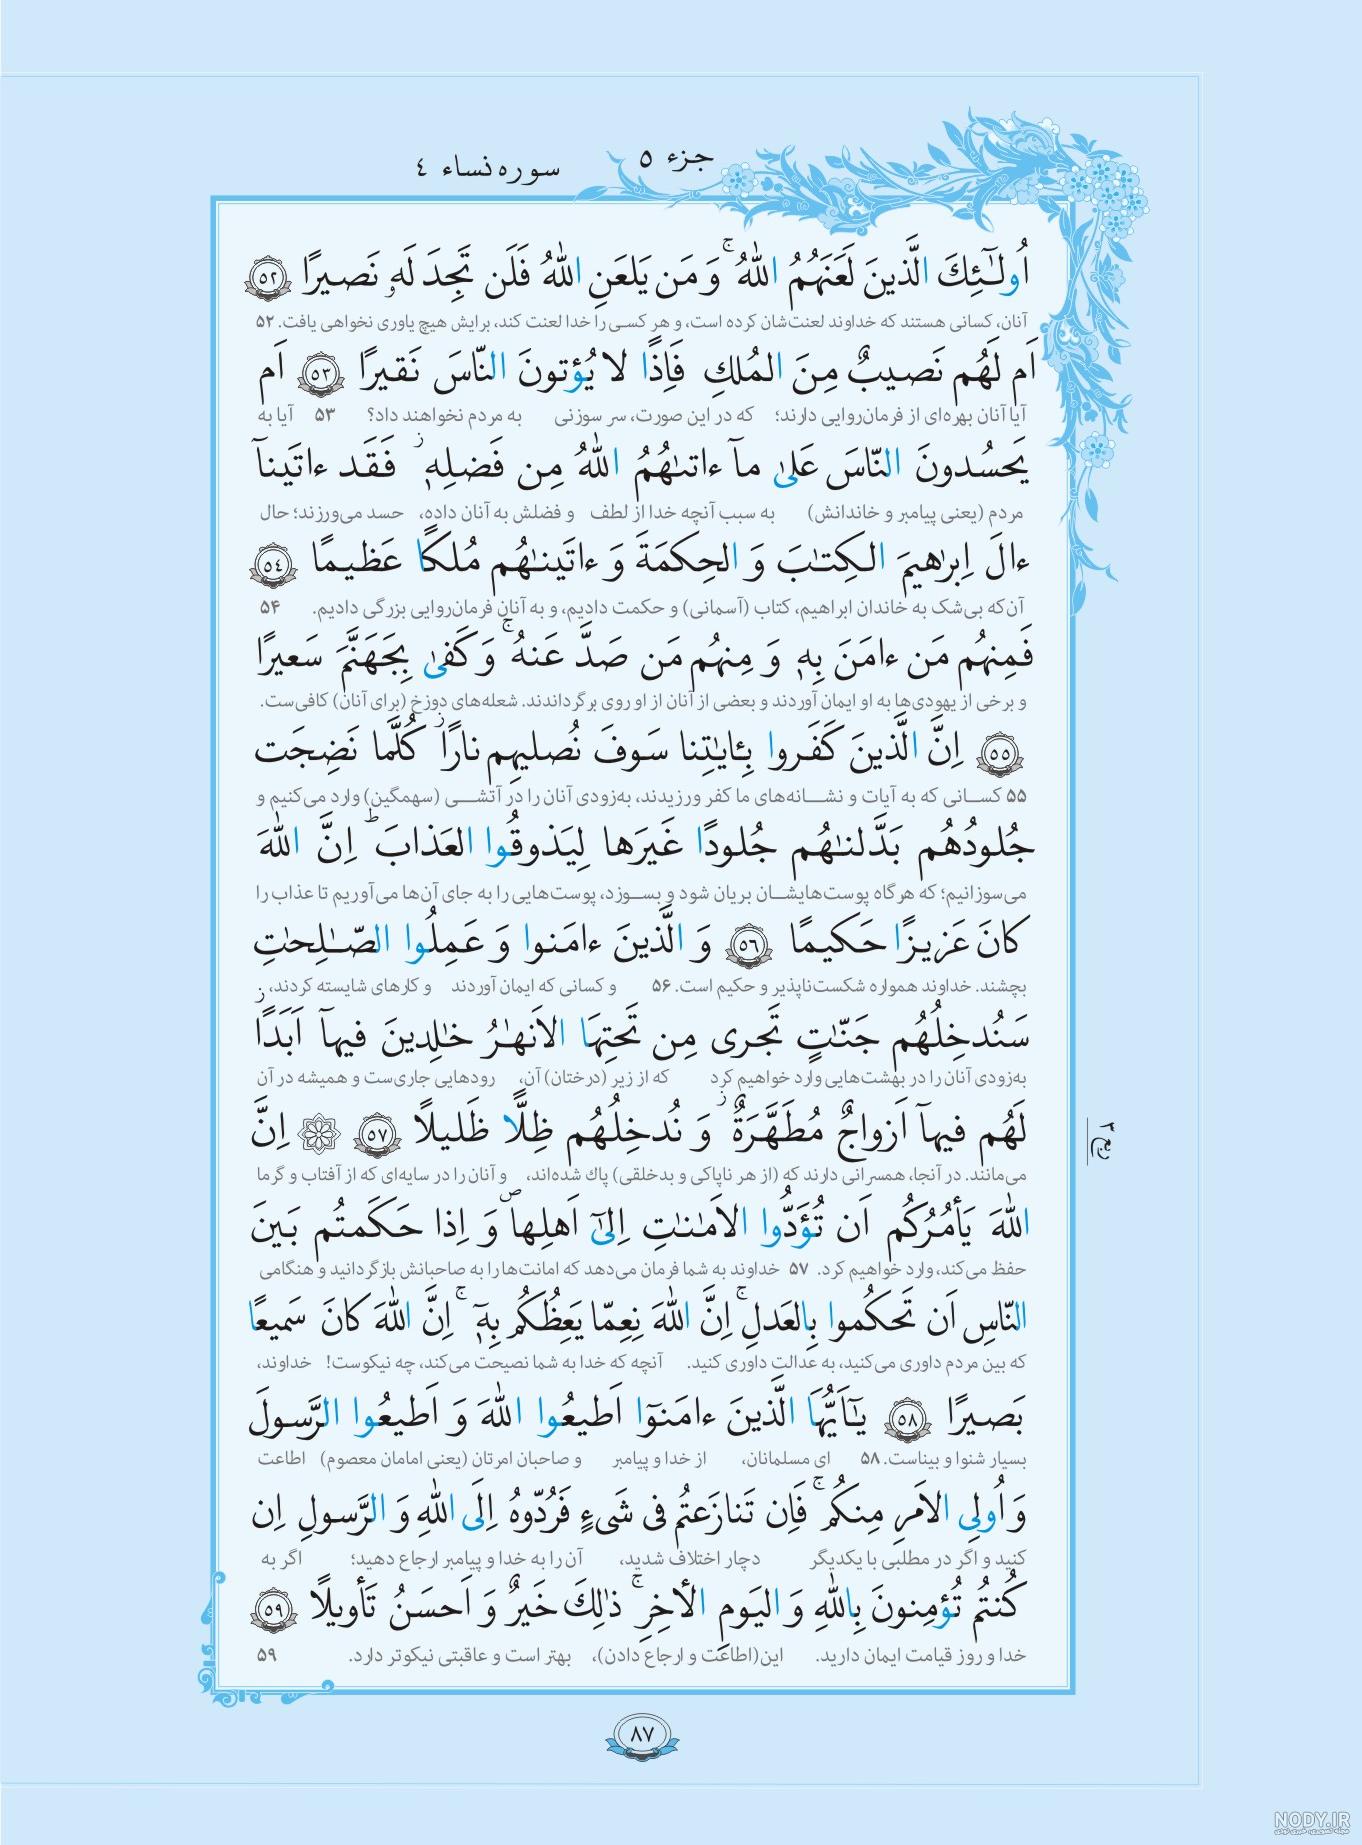 جزء ۵
سوره نساء ٤
اُولٰٓئِكَ الَّذينَ لَعَنَهُمُ اللّٰهُ ۚ وَ مَن يَلعَنِ اللّٰهُ فَلَن تَجِدَ لَهٗ نَصيرًا ٥٢
آنان، کسانی هستند که خداوند لعنت‌شان کرده است، و هر کسی را خدا لعنت کند، برایش هیچ یاوری نخواهی یافت. ۵۲
اَم لَهُم نَصيبٌ مِنَ المُلكِ فَاِذًا لا يُؤتونَ النّاسَ نَقيرًا ٥٣ اَم
آیا آنان بهره‌ای از فرمان‌روایی دارند؛ که در این صورت، سر سوزنی به مردم نخواهند داد؟ ۵۳ آیا به
يَحسُدونَ النّاسَ عَلىٰ مآ ءاتىٰهُمُ اللّٰهُ مِن فَضلِهٖ ۖ فَقَد ءاتَينآ
مردم (یعنی پیامبر و خاندانش) به سبب آنچه خدا از لطف و فضلش به آنان داده، حسد می‌ورزند؛ حال
ءالَ اِبرٰهيمَ الكِتٰبَ وَ الحِكمَةَ وَ ءاتَينٰهُم مُلكًا عَظيمًا ٥٤
آن‌که بی‌شک به خاندان ابراهیم، کتاب (آسمانی) و حکمت دادیم، و به آنان فرمان‌روایی بزرگی دادیم. ۵۴
فَمِنهُم مَن ءامَنَ بِهٖ وَ مِنهُم مَن صَدَّ عَنهُ ۚ وَ كَفىٰ بِجَهَنَّمَ سَعيرًا
و برخی از یهودی‌ها به او ایمان آوردند و بعضی از آنان از او روی برگرداندند. شعله‌های دوزخ (برای آنان) کافی‌ست.
٥٥ اِنَّ الَّذينَ كَفَروا بِـٔايٰتِنا سَوفَ نُصليهِم نارًا كُلَّما نَضِجَت
۵۵ کسانی که به آیات و نشانه‌های ما کفر ورزیدند، به‌زودی آنان را در آتشی (سهمگین) وارد می‌کنیم و
جُلودُهُم بَدَّلنٰهُم جُلودًا غَيرَها لِيَذوقُوا العَذابَ ۗ اِنَّ اللّٰهَ
می‌سوزانیم؛ که هرگاه پوست‌هایشان بریان شود و بسوزد، پوست‌هایی را به جای آن‌ها می‌آوریم تا عذاب را
كانَ عَزيزًا حَكيمًا ٥٦ وَ الَّذينَ ءامَنوا وَ عَمِلُوا الصّٰلِحٰتِ
بچشند. خداوند همواره شکست‌ناپذیر و حکیم است. ۵۶ و کسانی که ایمان آوردند و کارهای شایسته کردند،
سَنُدخِلُهُم جَنّٰتٍ تَجرى مِن تَحتِهَا الاَنهٰرُ خٰلِدينَ فيهآ اَبَدًا
به‌زودی آنان را در بهشت‌هایی وارد خواهیم کرد که از زیر (درختان) آن، رودهایی جاری‌ست و همیشه در آن
لَهُم فيهآ اَزواجٌ مُطَهَّرَةٌ وَ نُدخِلُهُم ظِلًّا ظَليلًا ٥٧ اِنَّ
می‌مانند. در آنجا، همسرانی دارند که (از هر ناپاکی و بدخلقی) پاك شده‌اند، و آنان را در سایه‌ای که از آفتاب و گرما
اللّٰهَ يَأمُرُكُم اَن تُؤَدُّوا الاَمٰنٰتِ اِلىٰٓ اَهلِها وَ اِذا حَكَمتُم بَينَ
حفظ می‌کند، وارد خواهیم کرد. ۵۷ خداوند به شما فرمان می‌دهد که امانت‌ها را به صاحبانش بازگردانید و هنگامی
النّاسِ اَن تَحكُموا بِالعَدلِ ۚ اِنَّ اللّٰهَ نِعِمّا يَعِظُكُم بِهٖٓ ۚ اِنَّ اللّٰهَ كانَ سَميعًا
که بین مردم داوری می‌کنید، به عدالت داوری کنید. آنچه که خدا به شما نصیحت می‌کند، چه نیکوست! خداوند،
بَصيرًا ٥٨ يٰٓاَيُّهَا الَّذينَ ءامَنوٓا اَطيعُوا اللّٰهَ وَ اَطيعُوا الرَّسولَ
بسیار شنوا و بیناست. ۵۸ ای مسلمانان، از خدا و پیامبر و صاحبان امرتان (یعنی امامان معصوم) اطاعت
وَ اُولِى الاَمرِ مِنكُم ۚ فَاِن تَنازَعتُم فى شَىءٍ فَرُدّوهُ اِلَى اللّٰهِ وَ الرَّسولِ اِن
کنید و اگر در مطلبی با یکدیگر دچار اختلاف شدید، آن را به خدا و پیامبر ارجاع دهید؛ اگر به
كُنتُم تُؤمِنونَ بِاللّٰهِ وَ اليَومِ الأخِرِ ۚ ذٰلِكَ خَيرٌ وَ اَحسَنُ تَأويلًا ٥٩
خدا و روز قیامت ایمان دارید. این(اطاعت و ارجاع دادن)، بهتر است و عاقبتی نیکوتر دارد. ۵۹
ربع ٢
٨٧
NODY.IR